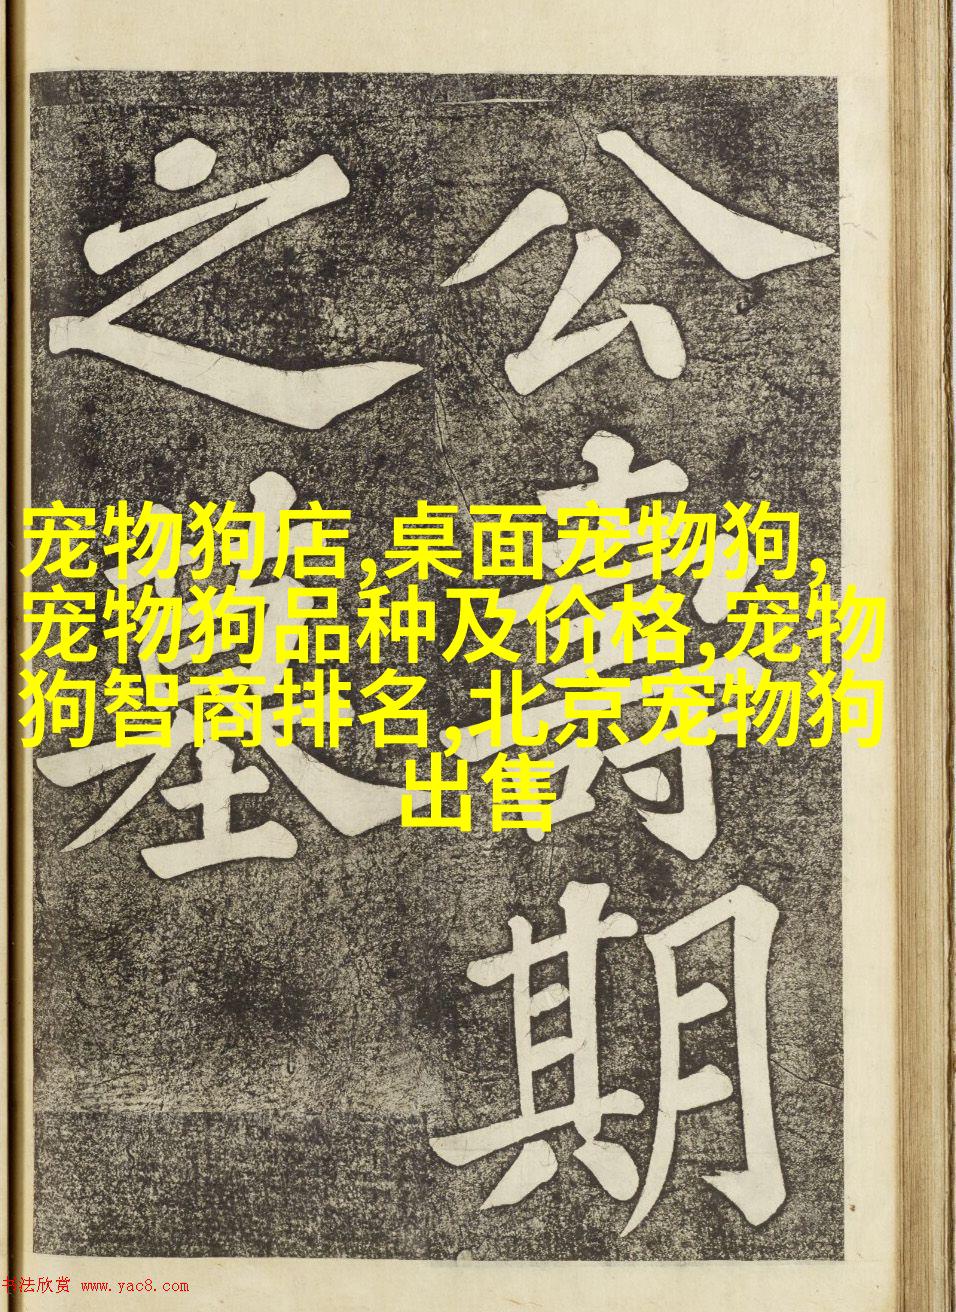 公壽期
之墓
宠物狗店,桌面宠物狗,
宠物狗品种及价格,宠物
狗智商排名,北京宠物狗
出售
书法欣赏 www.yac8.com